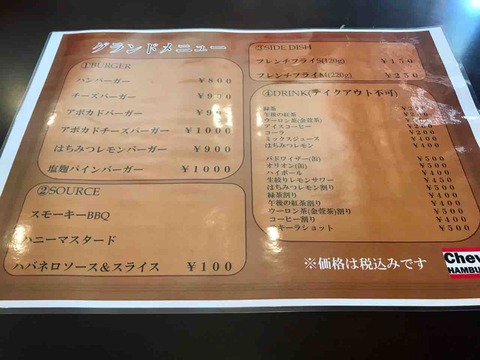 グランドメニュー
①BURGER
ハンバーガー ￥800
チーズバーガー ￥900
アボカドバーガー ￥900
アボカドチーズバーガー ￥1000
はちみつレモンバーガー ￥900
塩麹パインバーガー ￥1000
②SOURCE
スモーキーBBQ
ハニーマスタード
ハバネロソース＆スライス ￥100
③SIDE DISH
フレンチフライS(120g) ￥150
フレンチフライM(220g) ￥250
④DRINK(テイクアウト不可)
緑茶
午後の紅茶
ウーロン茶(金萱茶)
アイスコーヒー
コーラ
ミックスジュース
はちみつレモン
バドワイザー(缶) ￥500
オリオン(缶) ￥500
ハイボール ￥400
生絞りレモンサワー ￥450
はちみつレモン割り ￥500
緑茶割り ￥400
午後の紅茶割り ￥400
ウーロン茶(金萱茶)割り ￥500
コーヒー割り ￥400
キーラショット ￥500
※価格は税込みです
Chev
HAMBU